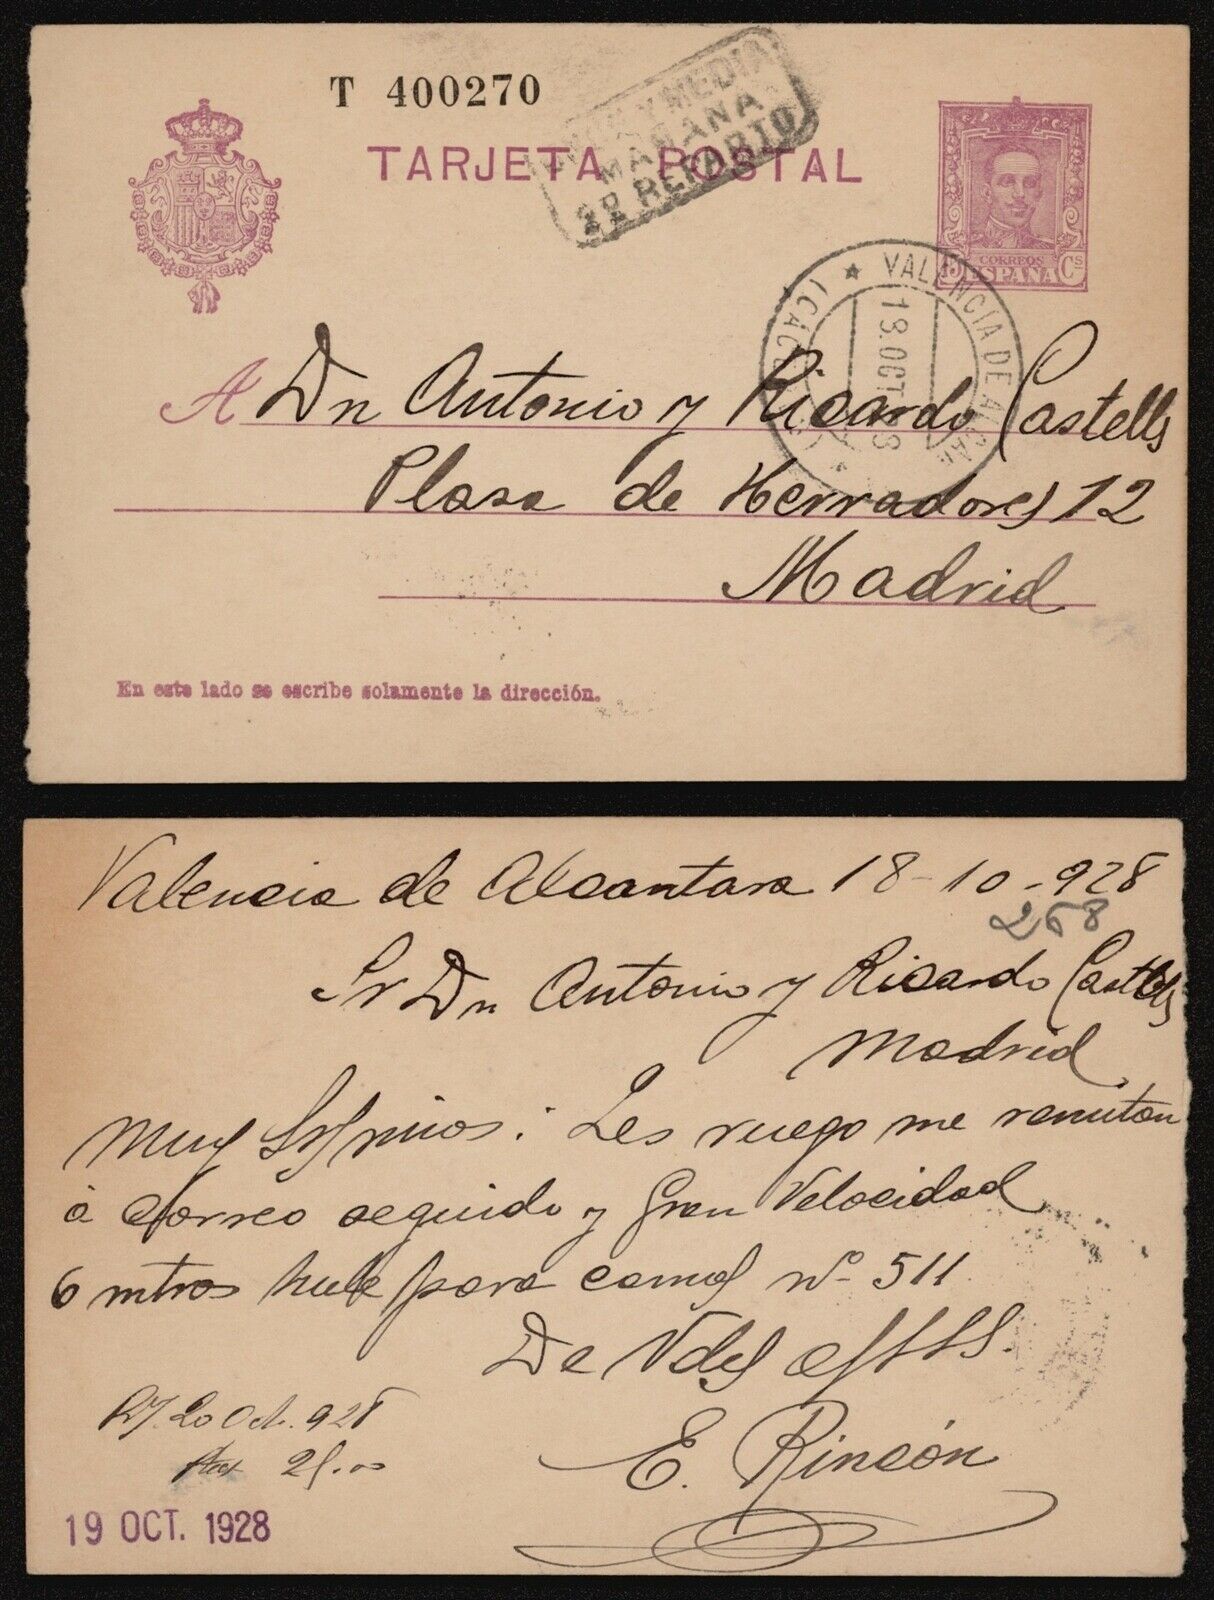 T 400270
Y MEDIA
MAÑANA
2º REPARTO
TARJETA POSTAL
CORREOS
15 ESPAÑA Cs
VALENCIA DE ALCAN
18.OCT
A Dn Antonio y Ricardo Castells
Plasa de Herradores 12
Madrid
En este lado se escribe solamente la dirección.
Valencia de Alcantara 18-10-928
268
Sr Dn Antonio y Ricardo Castells
Madrid
Muy Sres mios: Les ruego me remitan
á correo seguido y Gran Velocidad
6 mtros hule para camas nº 511
De Vdes
E. Rincón
20 Oct. 928
19 OCT. 1928